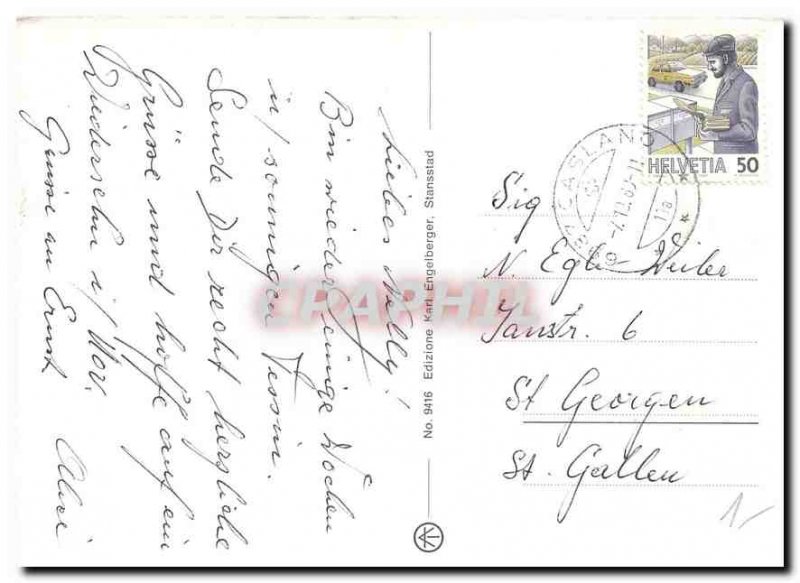 Liebes Nelly!
Bin wieder einige Wochen
im sonnigen Tessin.
Sende Dir recht herzliche
Grüsse und hoffe auf ein
Wiedersehn i/ Nov.
Grüsse an Ernst
Alice
No. 9416 Edizione Karl Engelberger, Stansstad
HELVETIA 50
CASLANO
Sig
N. Egle-Weiler
Ianstr. 6
St Georgen
St. Gallen
CPAPHIL